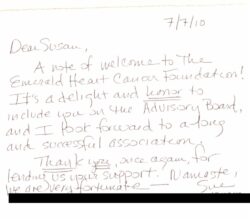 7/7/10
Dear Susan,
A note of welcome to The
Emerald Heart Cancer Foundation!
It's a delight and honor to
include you on the Advisory Board,
and I look forward to a long
and successful association.
Thank you, once again, for
lending us your support. Namaste,
we are very fortunate — Sue